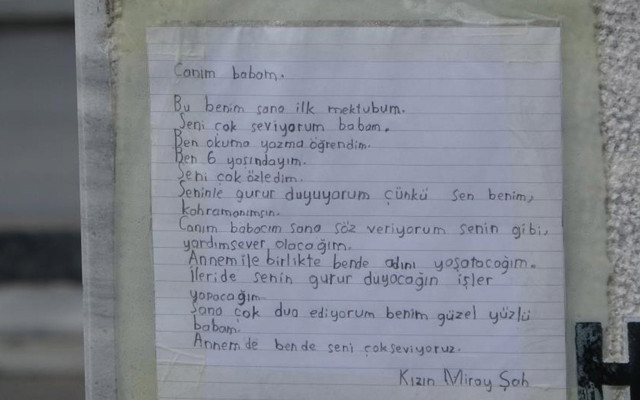 Canım babam.
Bu benim sana ilk mektubum.
Seni çok seviyorum babam.
Ben okuma yazma öğrendim.
Ben 6 yaşındayım.
Seni çok özledim.
Seninle gurur duyuyorum çünkü sen benim,
kahramanımsın.
Canım babacım sana söz veriyorum senin gibi,
yardımsever olacağım.
Annemile birlikte bende adını yaşatacağım.
İleride senin gurur duyacağın işler
yapacağım.
Sana çok dua ediyorum benim güzel yüzlü
babam.
Annemde bende seni çokseviyoruz.
Kızın Miray Şah